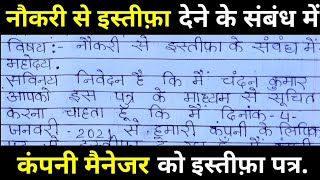 नौकरी से इस्तीफ़ा देने के संबंध में
विषय:- नौकरी से इस्तीफा के संबंध में
महोदय.
सविनय निवेदन है कि मैं चंदन कुमार
आपको इस पत्र के माध्यम से सूचित
करना चाहता हूं कि मैं दिनांक-4-
जनवरी-2021 से हमारी कंपनी के लिपिक
कंपनी मैनेजर को इस्तीफ़ा पत्र.